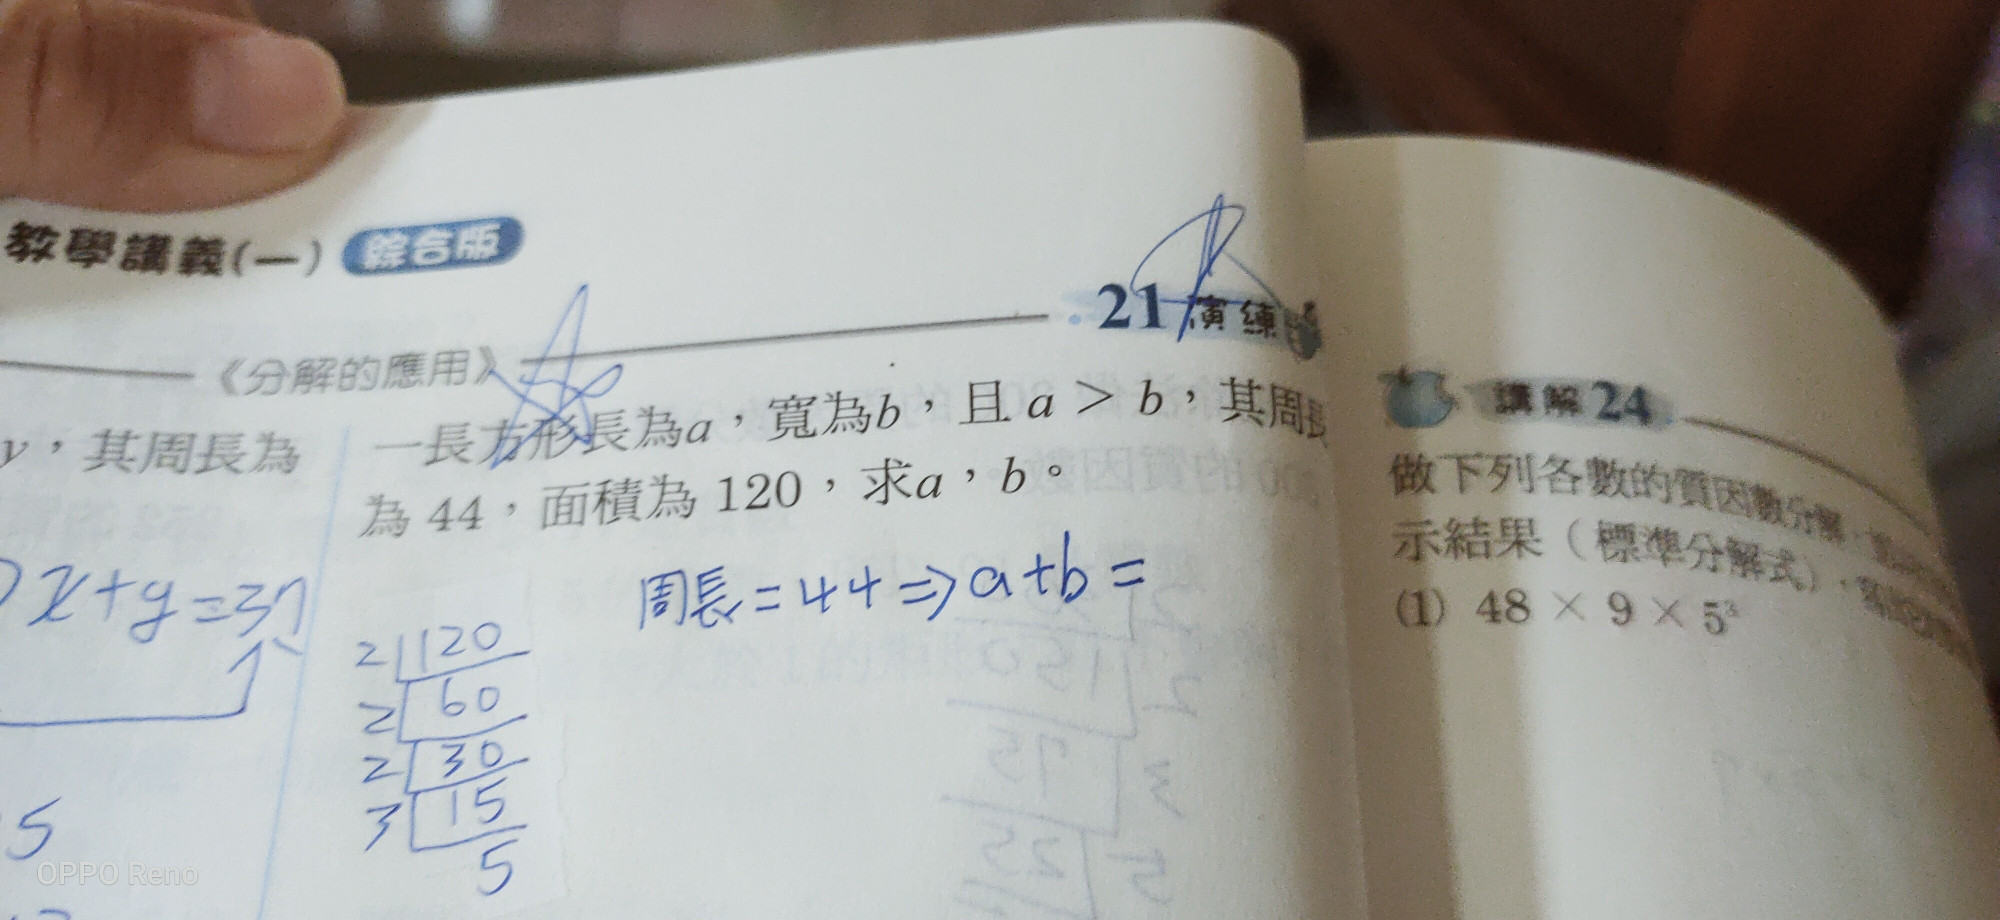 教學講義(一) 綜合版
《分解的應用》
21 演練
y，其周長為
一長方形長為a，寬為b，且 a > b，其周長
為 44，面積為 120，求a，b。
x+y=37
周長=44⇒a+b=
2 120
2 60
2 30
3 15
5
5
講解 24
做下列各數的質因數分解，
示結果（標準分解式），
(1) 48 × 9 × 5³
OPPO Reno